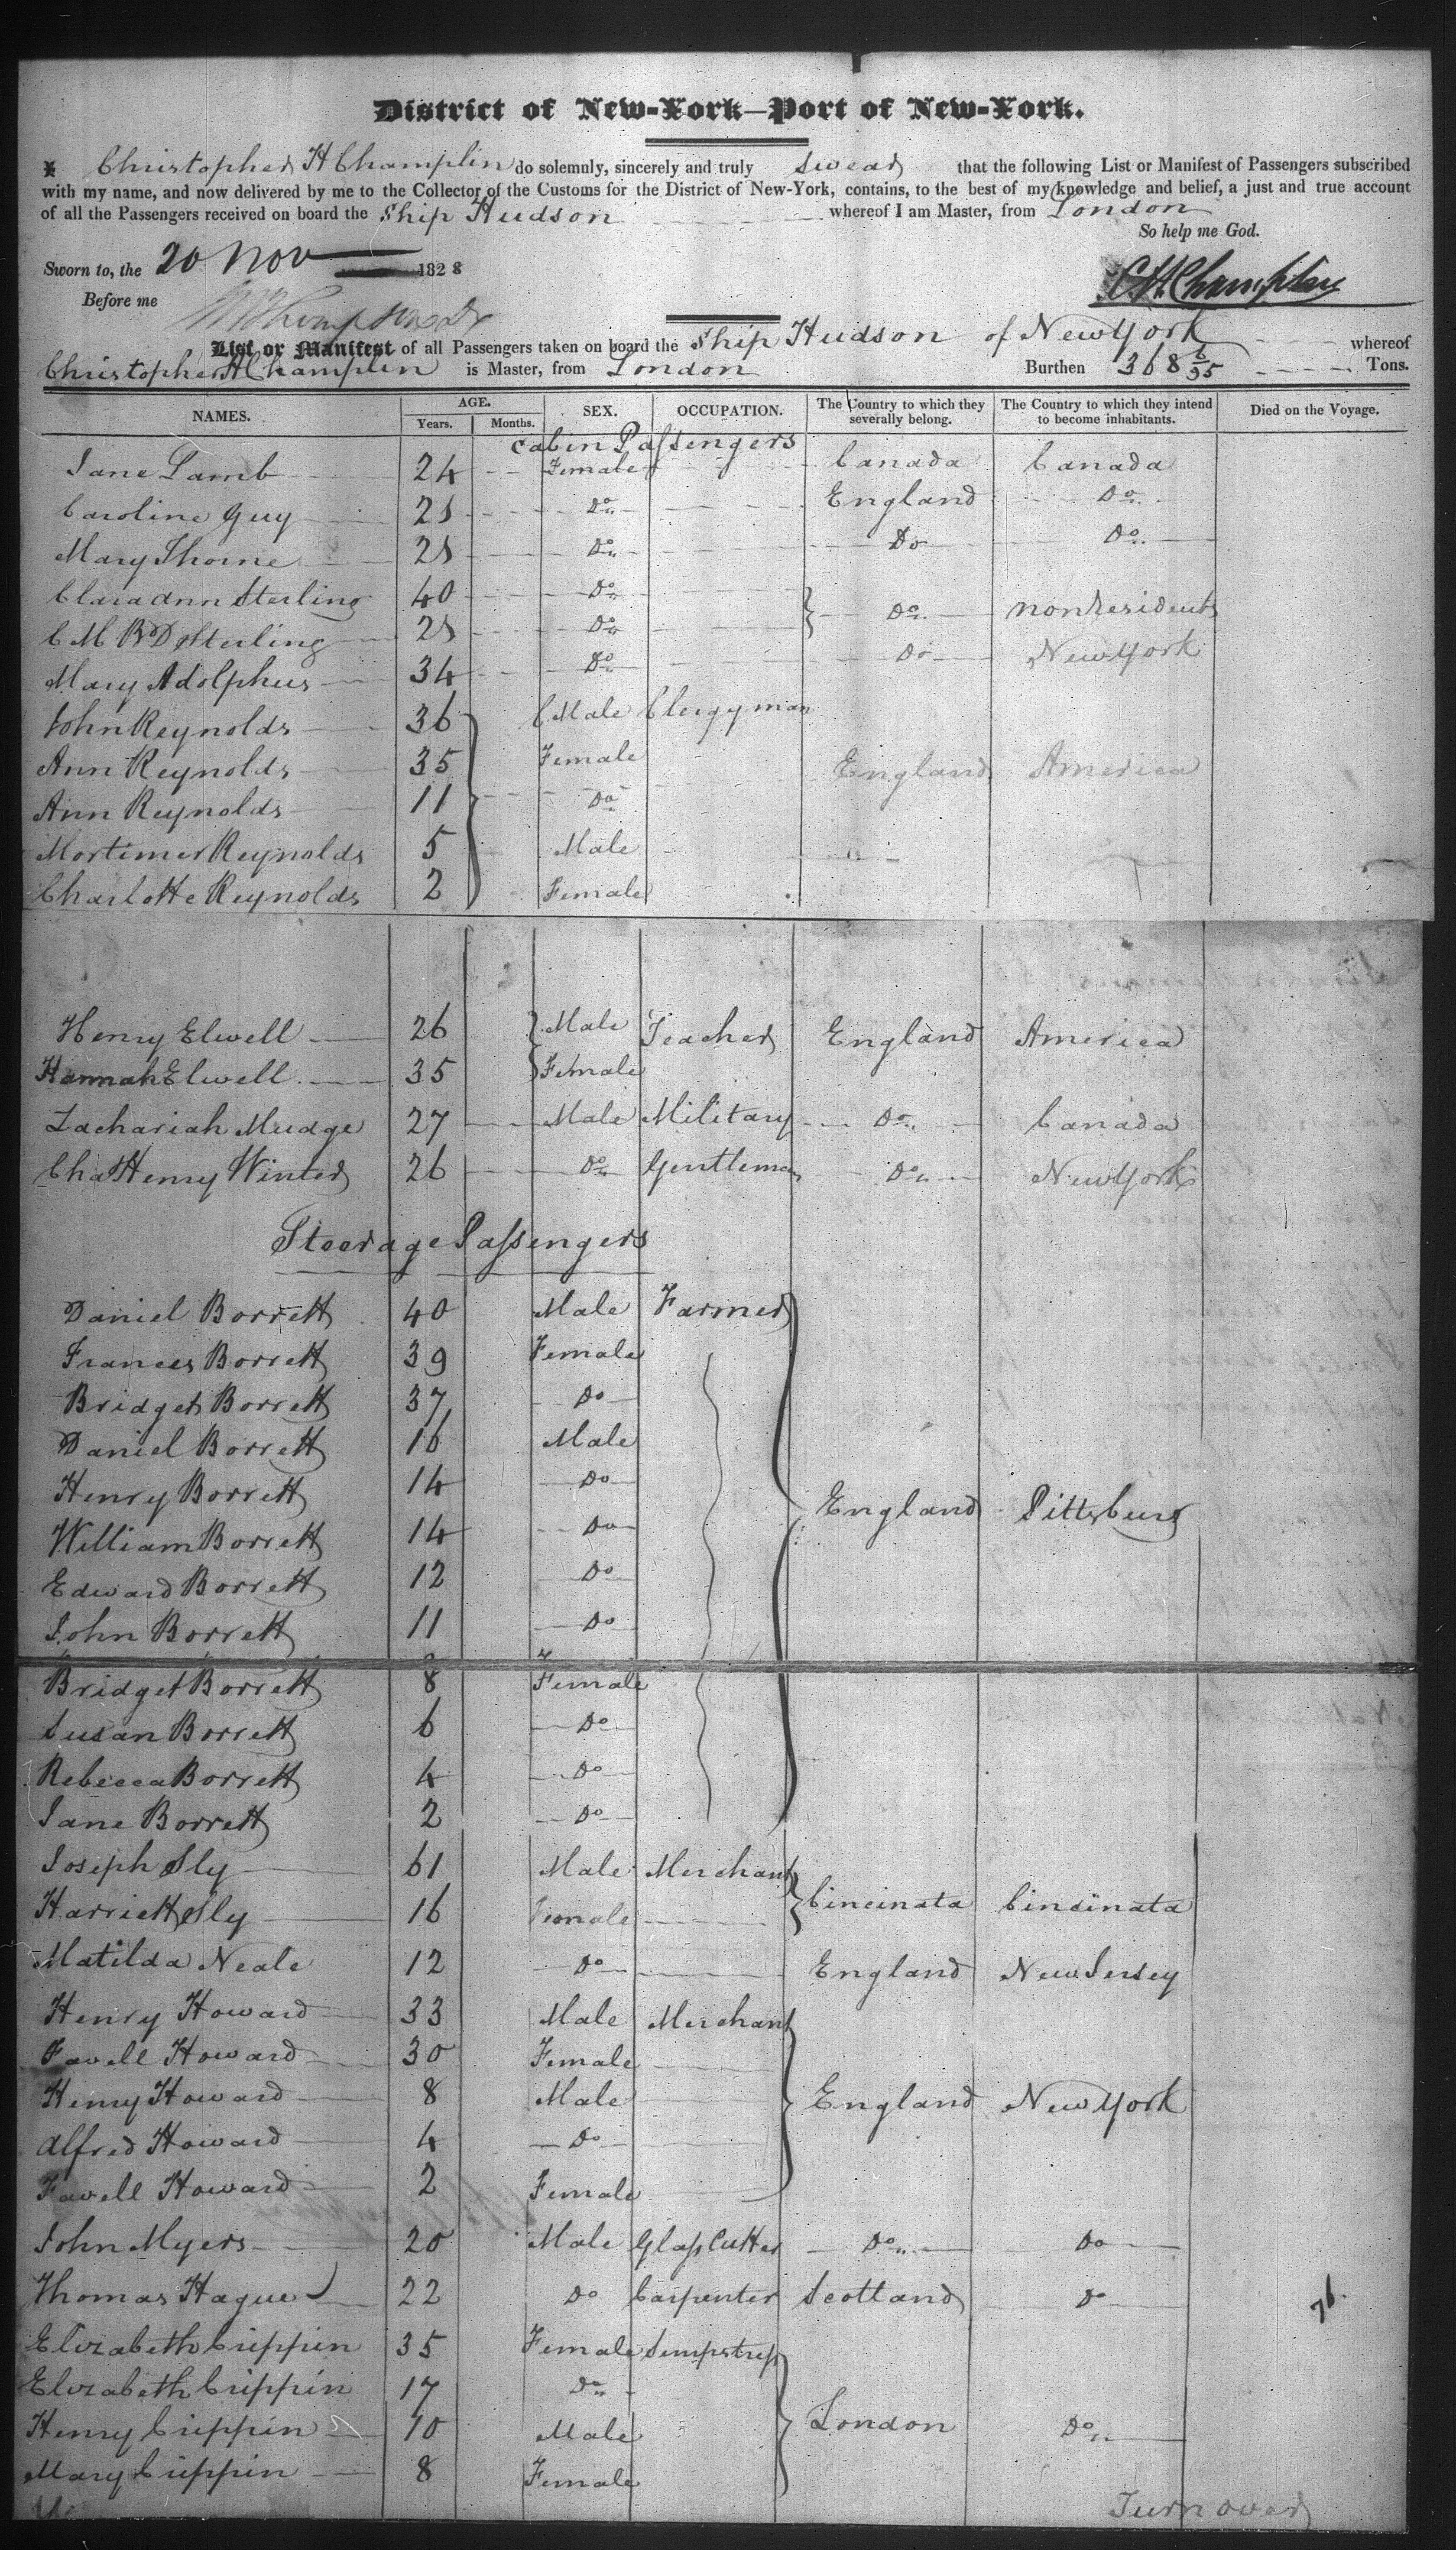 District of New-York—Port of New-York.
I, Christopher H Champlin do solemnly, sincerely and truly swear that the following List or Manifest of Passengers subscribed
with my name, and now delivered by me to the Collector of the Customs for the District of New-York, contains, to the best of my knowledge and belief, a just and true account
of all the Passengers received on board the Ship Hudson whereof I am Master, from London
So help me God.
Sworn to, the 20 Nov 1828
Before me
C H Champlin
List or Manifest of all Passengers taken on board the Ship Hudson of New York whereof
Christopher H Champlin is Master, from London Burthen 368 Tons.
NAMES. AGE. Years. Months. SEX. OCCUPATION. The Country to which they severally belong. The Country to which they intend to become inhabitants. Died on the Voyage.
Cabin Passengers
Jane Lamb 24 Female Canada Canada
Caroline Guy 25 Do England Do
Mary Thorne 25 Do Do Do
Clara Ann Sterling 40 Do
C M B D Sterling 25 Do Do non Residents
Mary Adolphus 34 Do Do New York
John Reynolds 36 Male Clergyman
Ann Reynolds 35 Female England America
Ann Reynolds 11 Do
Mortimer Reynolds 5 Male
Charlotte Reynolds 2 Female
Henry Elwell 26 Male Teacher England America
Hannah Elwell 35 Female
Zachariah Mudge 27 Male Military Do Canada
Chas Henry Winter 26 Do Gentleman Do New York
Steerage Passengers
Daniel Borrett 40 Male Farmer
Frances Borrett 39 Female
Bridget Borrett 37 Do
Daniel Borrett 16 Male
Henry Borrett 14 Do
England Pittsburg
William Borrett 14 Do
Edward Borrett 12 Do
John Borrett 11 Do
Bridget Borrett 8 Female
Susan Borrett 6 Do
Rebecca Borrett 4 Do
Jane Borrett 2 Do
Joseph Sly 61 Male Merchant
Cincinata Cincinata
Harriett Sly 16 Female
Matilda Neale 12 Do England New Jersey
Henry Howard 33 Male Merchant
Favell Howard 30 Female
Henry Howard 8 Male England New York
Alfred Howard 4 Do
Favell Howard 2 Female
John Myers 20 Male Glass Cutter Do Do
Thomas Hague 22 Do Carpenter Scotland Do
76.
Elizabeth Crippin 35 Female Sempstress
Elizabeth Crippin 17 Do
Henry Crippin 10 Male London Do
Mary Crippin 8 Female
Turn over